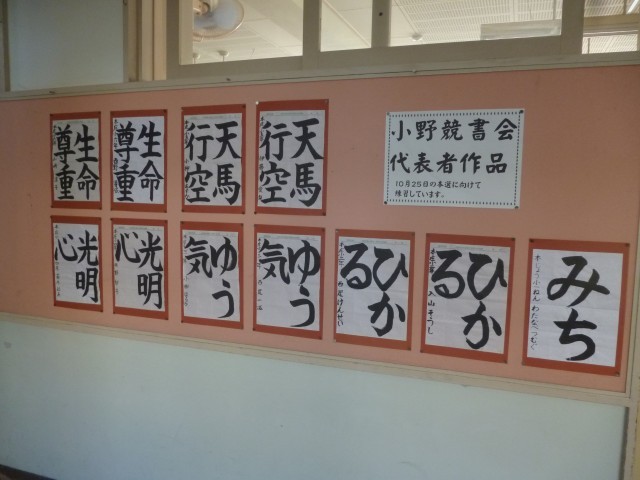 小野競書会
代表者作品
10月25日の本選に向けて
練習しています。
生命
尊重
生命
尊重
天馬
行空
天馬
行空
光明
心
光明
心
ゆう
気
ゆう
気
ひか
る
ひか
る
みち